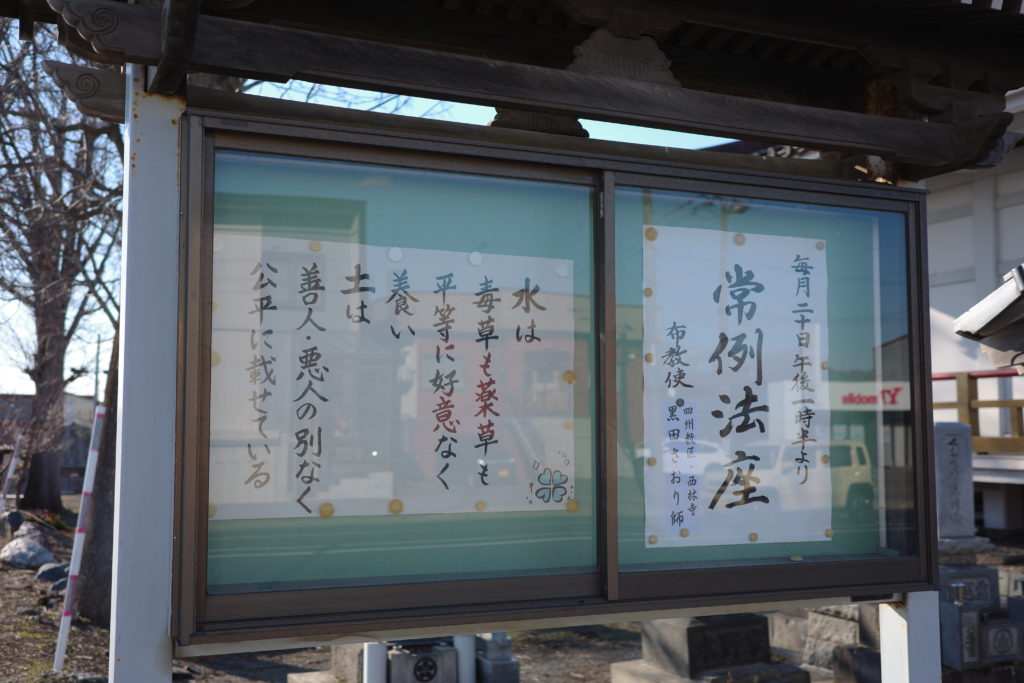 毎月二十日午後一時半より
常例法座
布教使
四州教区・西林寺
黒田さおり師
水は
毒草も薬草も
平等に好意なく
養い
土は
善人・悪人の別なく
公平に載せている
Y!mobile